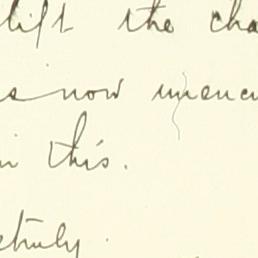 lift the cha
is now unencu
in this.
truly.